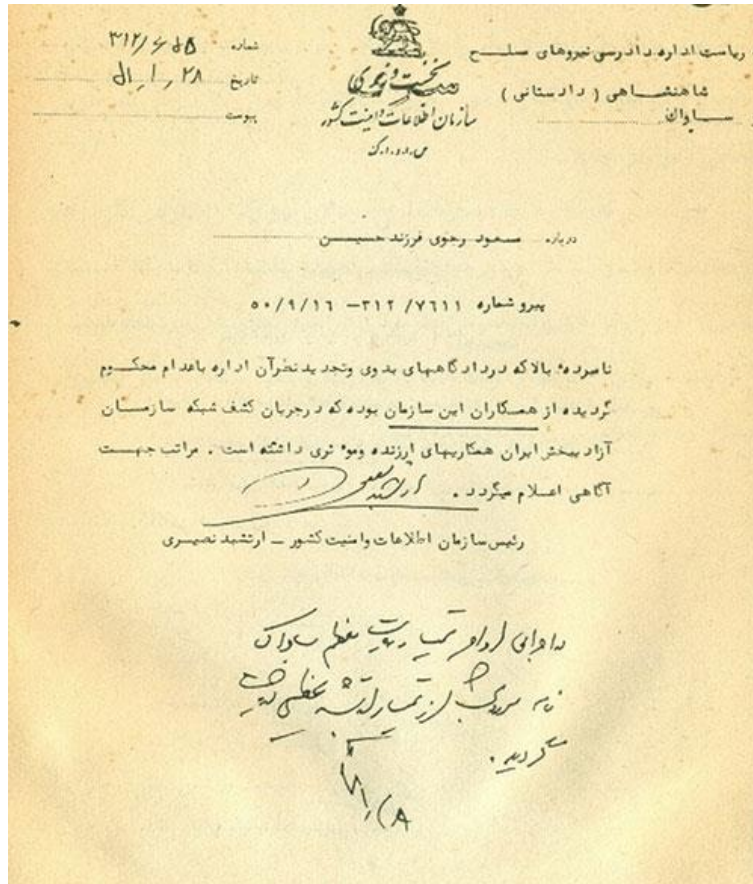 ریاست اداره دادرسی نیروهای مسلح
شاهنشاهی ( دادستانی )
ساواک
نخست وزیری
سازمان اطلاعات و امنیت کشور
س.ا.و.ا.ک
شماره ۳۱۲/
تاریخ ۵۱٫۱٫۲۸
پیوست
درباره مسعود رجوی فرزند حسیـــن
پیرو شماره ۷۶۱۱/ ۳۱۲– ۵۰/۹/۱۶
نامبرده بالا که در دادگاههای بدوی وتجدید نظر آن اداره باعدام محکــوم
گردیده از همکاران این سازمان بوده که در جریان کشف شبکه سازمــان
آزاد یبخش ایران همکاریهای ارزنده وموء ثری داشته است . مراتب جهــت
آگاهی اعــلام میگردد .
رئیس سازمان اطلاعات وامنیت کشور ــ ارتشبد نصیــری
ریاست معظم ساواک
گردید .